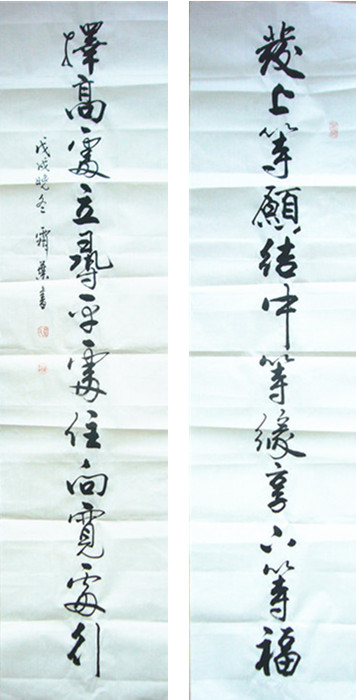 發上等願結中等緣享下等福
擇高處立尋平處住向寬處行
戊戌 冬 葉書